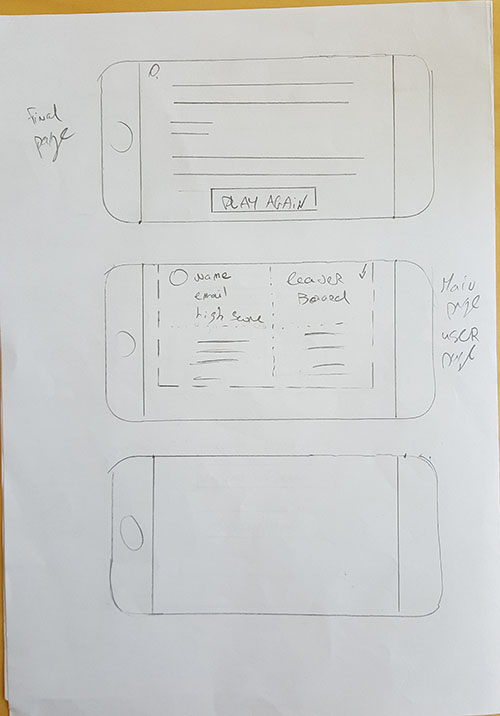 Final
page
PLAY AGAIN
name
email
high score
leader
Board
Main
page
USER
page